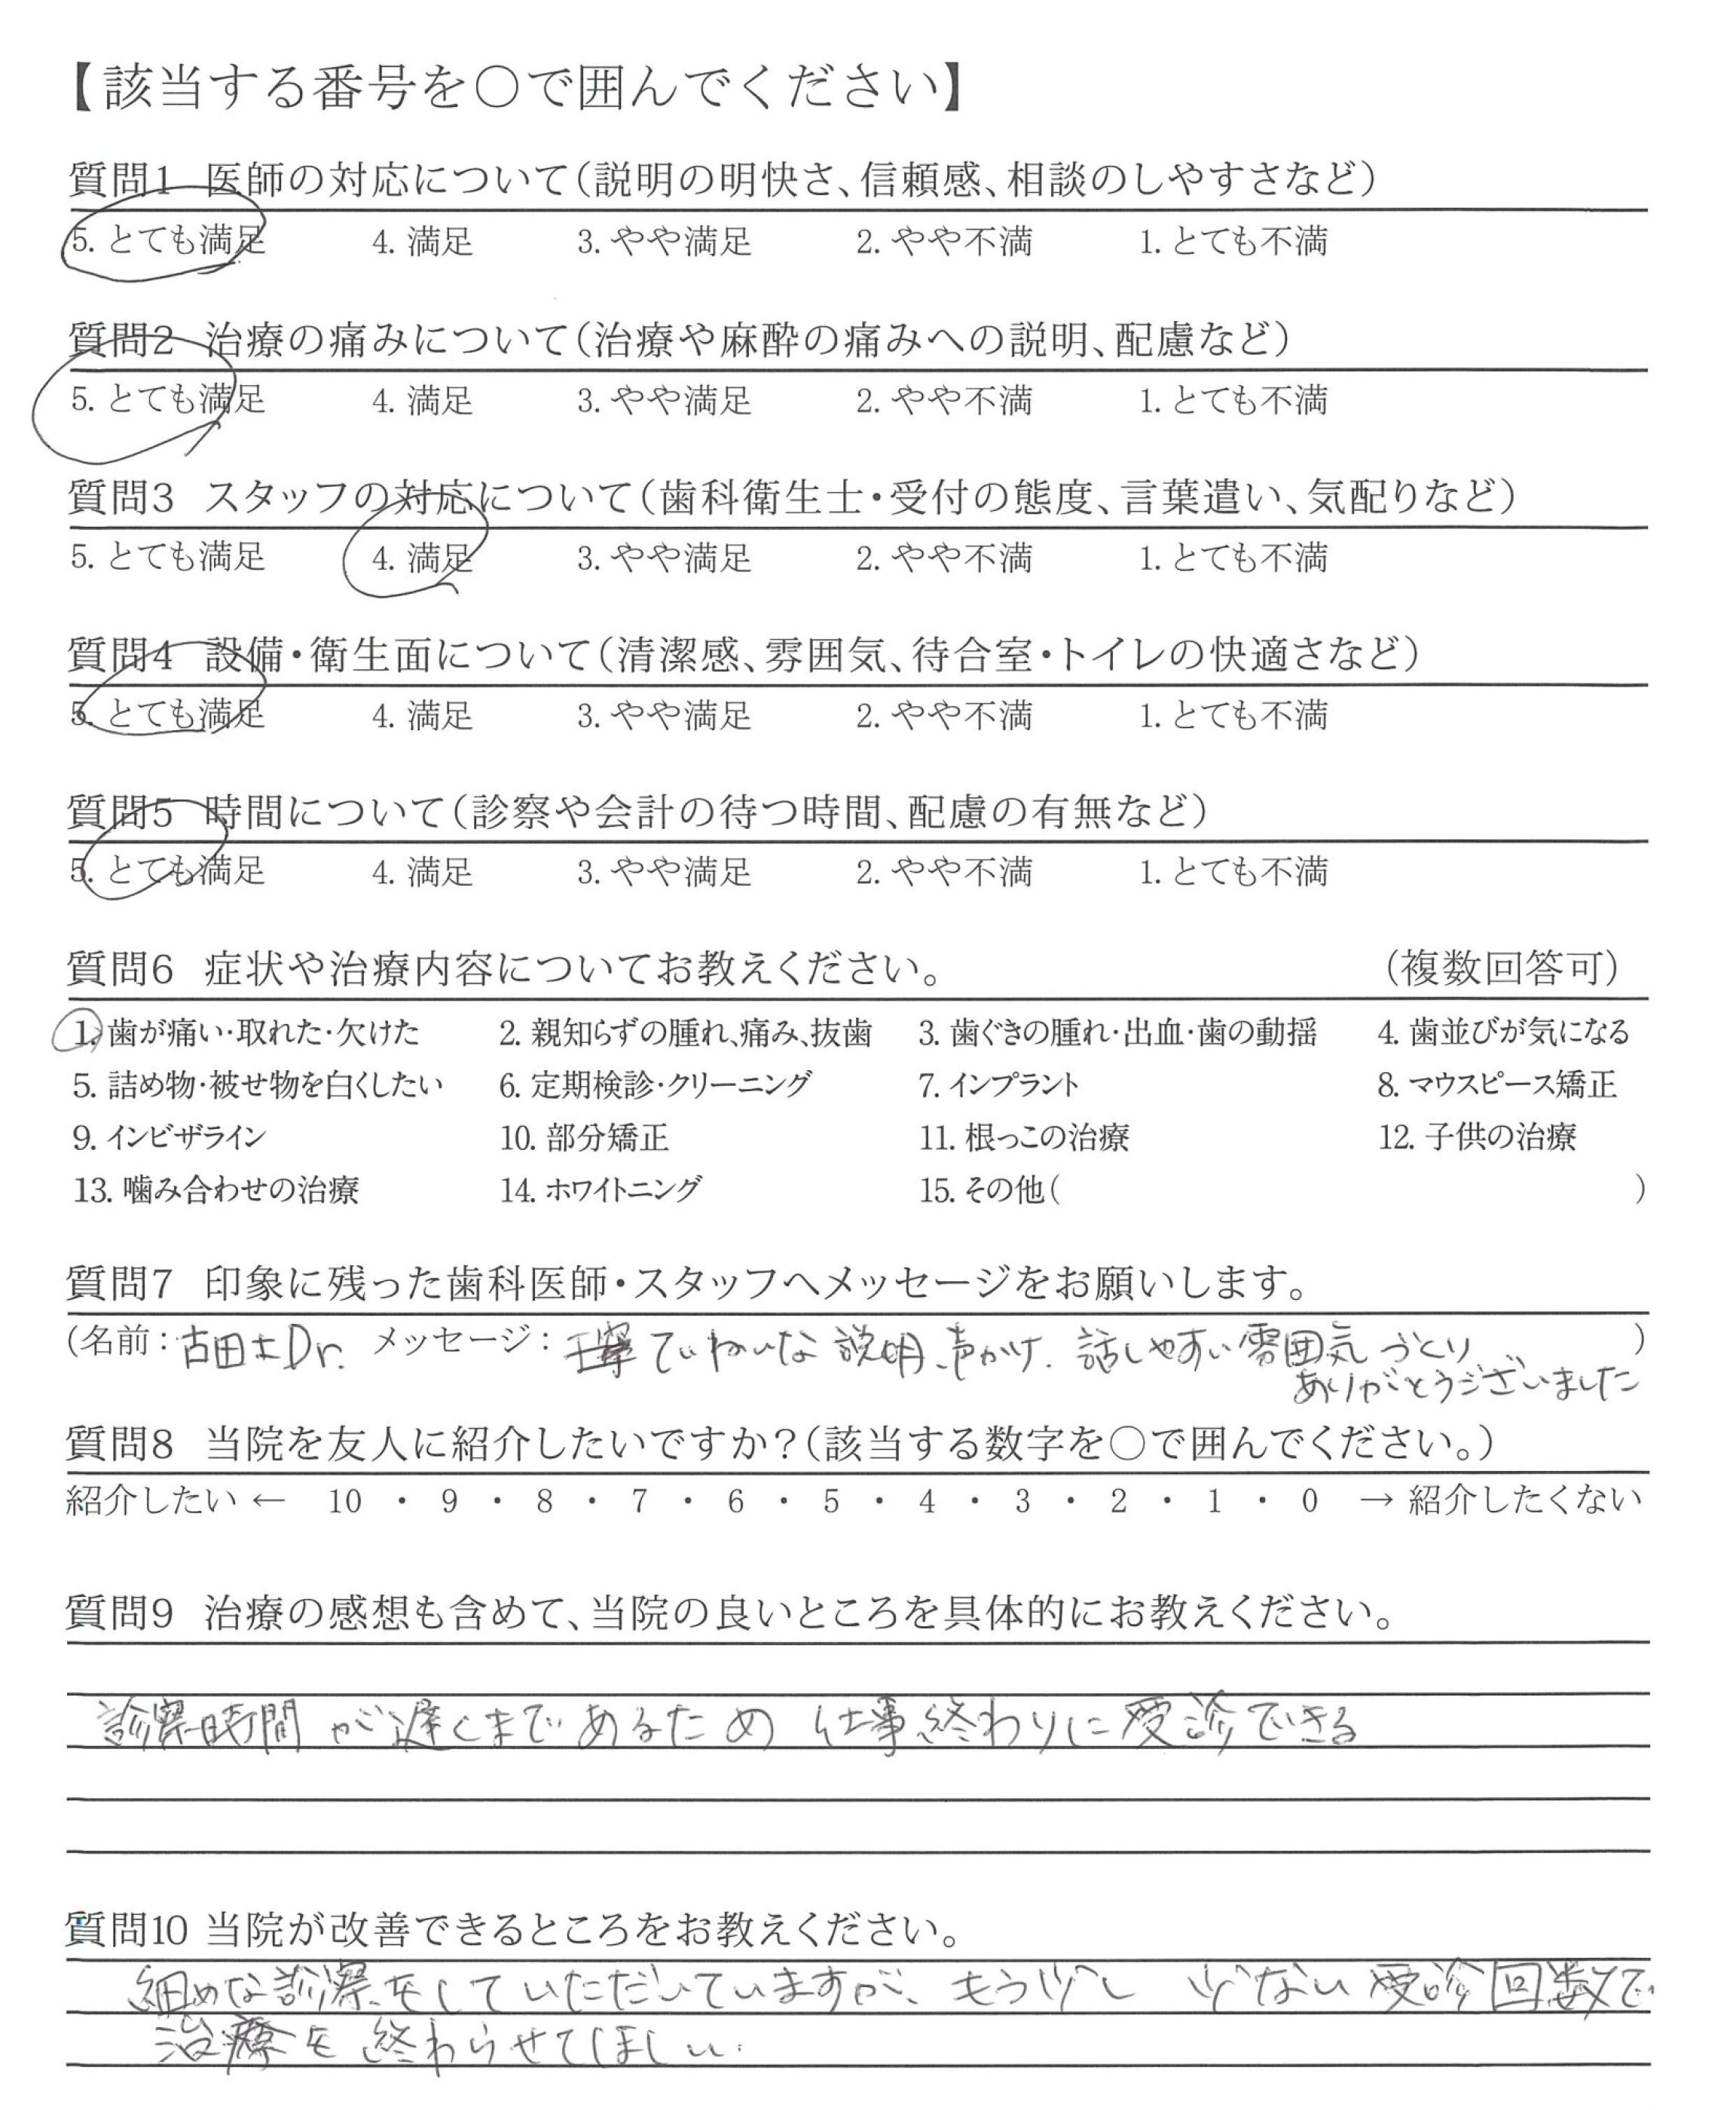 【該当する番号を○で囲んでください】
質問1 医師の対応について（説明の明快さ、信頼感、相談のしやすさなど）
5. とても満足 4. 満足 3. やや満足 2. やや不満 1. とても不満
質問2 治療の痛みについて（治療や麻酔の痛みへの説明、配慮など）
5. とても満足 4. 満足 3. やや満足 2. やや不満 1. とても不満
質問3 スタッフの対応について（歯科衛生士・受付の態度、言葉遣い、気配りなど）
5. とても満足 4. 満足 3. やや満足 2. やや不満 1. とても不満
質問4 設備・衛生面について（清潔感、雰囲気、待合室・トイレの快適さなど）
5. とても満足 4. 満足 3. やや満足 2. やや不満 1. とても不満
質問5 時間について（診察や会計の待つ時間、配慮の有無など）
5. とても満足 4. 満足 3. やや満足 2. やや不満 1. とても不満
質問6 症状や治療内容についてお教えください。 （複数回答可）
1. 歯が痛い・取れた・欠けた 2. 親知らずの腫れ、痛み、抜歯 3. 歯ぐきの腫れ・出血・歯の動揺 4. 歯並びが気になる
5. 詰め物・被せ物を白くしたい 6. 定期検診・クリーニング 7. インプラント 8. マウスピース矯正
9. インビザライン 10. 部分矯正 11. 根っこの治療 12. 子供の治療
13. 噛み合わせの治療 14. ホワイトニング 15. その他（ ）
質問7 印象に残った歯科医師・スタッフへメッセージをお願いします。
（名前：古田土Dr. メッセージ：ていねいな説明、声かけ、話しやすい雰囲気づくり ）
ありがとうございました
質問8 当院を友人に紹介したいですか？（該当する数字を○で囲んでください。）
紹介したい ← 10 ・ 9 ・ 8 ・ 7 ・ 6 ・ 5 ・ 4 ・ 3 ・ 2 ・ 1 ・ 0 → 紹介したくない
質問9 治療の感想も含めて、当院の良いところを具体的にお教えください。
診察時間が遅くまであるため 仕事終わりに受診できる
質問10 当院が改善できるところをお教えください。
細めな診察をしていただいていますが、もう少し 少ない受診回数で
治療を終わらせてほしい.